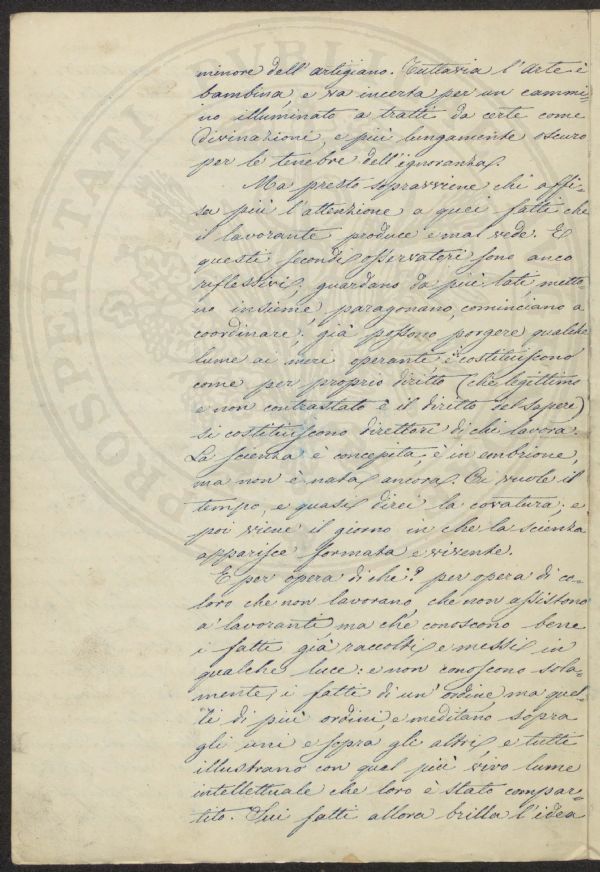 minore dell'artigiano. Tuttavia l'Arte è
bambina, e va incerta per un cammi=
no illuminato a tratti da certe come
divinazioni, e più lungamente oscuro
per le tenebre dell'ignoranza.
Ma presto sopravviene chi affi-
sa più l'attenzione a quei fatti che
il lavorante produce e mal vede. E
questi secondi osservatori sono anco
riflessivi, guardano da più lati, metto-
no insieme, paragonano, cominciano a
coordinare; già possono porgere qualche
lume ai meri operanti, e costituiscono
come per proprio diritto (chè legittimo
e non contrastato è il diritto del sapere)
si costituiscono direttori di chi lavora.
La scienza è concepita, è in embrione,
ma non è nata ancora. Ci vuole il
tempo, e quasi direi la covatura; e
poi viene il giorno in che la scienza
apparisce formata e vivente.
E per opera di chi? per opera di co-
loro che non lavorano, che non assistono
a' lavoranti, ma che conoscono bene
i fatti già raccolti e messi in
qualche luce: e non conoscono sola=
mente i fatti di un ordine, ma quel-
li di più ordini, e meditano sopra
gli uni e sopra gli altri, e tutti
illustrano con quel più vivo lume
intellettuale che loro è stato compar-
tito. Sui fatti allora brilla l'idea
PVBLI
PROSPERITATI